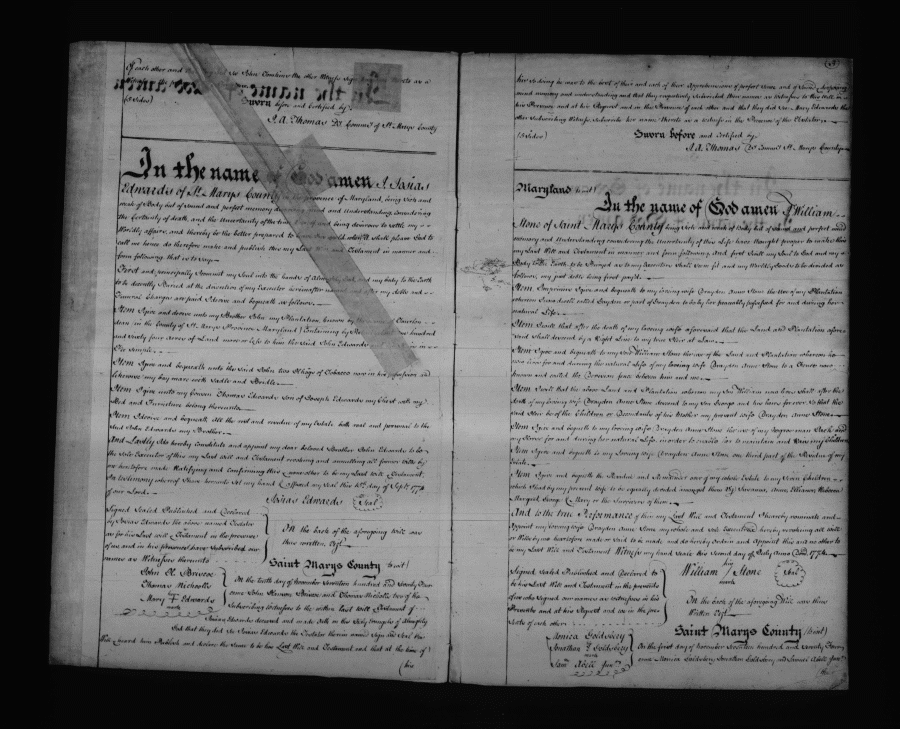 of each other and
Sworn before and Certified by
J. A. Thomas Dy Commry of St Marys County
In the name of God amen I Josias
Edwards of St Marys County in the province of Maryland, being Sick and
weak of Body but of Sound and perfect memory and Understanding, Considering
the Certainty of death, and the Uncertainty of the and being desirous to settle my
Worldly affairs, and thereby be the better prepared to when it shall please God to
call me hence do therefore make and publish this my Last Will and Testament in manner and
form following that is to say
First and principally I commit my Soul into the hands of Almighty God and my body to the Earth
to be decently Buried at the discretion of my Executor hereinafter named and after my debts and
Funeral Charges are paid I devise and bequeath as follows
Item I give and devise unto my Brother John my Plantation
in the County of St Marys Province Maryland Containing by hundred
and Sixty four Acres of Land more or less to him the said John Edwards
Fee Simple
Item I give and bequeath unto the said John two Hhds of Tobacco now in his possession and
likewise my bay mare with Saddle and Bridle
Item I give unto my Cousin Thomas Edwards Son of Joseph Edwards my Chest with my
Bed and Furniture belong thereunto
Item I devise and bequeath all the rest and residue of my Estate both real and personal to the
said John Edwards my Brother
And Lastly I do hereby Constitute and appoint my dear beloved Brother John Edwards to be
the sole Executor of this my Last Will and Testament revoking and annulling all former Wills by
me heretofore made Ratifying and Confirming this & none other to be my Last Will & Testament
In testimony whereof I have hereunto Set my hand & affixed my Seal this day of Septr 1774
of our Lord
Josias Edwards (Seal)
Signed Sealed Published and Declared
by Josias Edwards the above named Testator
as for his Last will & Testament in the presence
of us and in his presence have Subscribed our
names as Witnesses thereunto
John H. Briscoe
Thomas Nicholls
Mary Edwards
mark
On the back of the aforegoing Will was
thus written Viz
Saint Marys County (Saint)
On the tenth day of November Seventeen hundred and Seventy Four
came John Hanson Briscoe and Thomas Nicholls two of the
Subscribing Witnesses to the within Last Will & Testament of
Josias Edwards deceased and made Oath on the Holy Evangels of Almighty
God that they did See Josias Edwards the Testator therein named Sign and Seal this
Will heard him Publish and declare the Same to be his Last Will and Testament and that at the time of
(his
his so doing he was to the best of their and each of their Apprehensions of perfect Sound and of Disposing
mind memory and understanding and that they respectively Subscribed their names as Witnesses to this Will in
his Presence and at his Request and in the Presence of each other and that they did See Mary Edwards the
other Subscribing Witness Subscribe her name thereto as a Witness in the Presence of the Testator
Sworn before and Certified by
J. A. Thomas Dy Commry St Marys County
Maryland
In the name of God amen I William
Stone of Saint Marys County being Sick and weak of Body but of Sound and perfect mind
memory and Understanding considering the Uncertainty of this Life have thought proper to make this
my Last Will and Testament in manner and form following. And first I will my Soul to God and my
Body to the Earth to be Buried as to my Executors shall seem fit and my Worldly Goods to be divided as
follows, my just debts being first paid
Item Imprimis I give and bequeath to my loving Wife Drayden Anne Stone the Use of my Plantation
Natural Life
Item I will that after the death of my Loving Wife aforesaid that the Land and Plantation afore
said shall descend by a Right Line to my true Heir at Law
Item I give and bequeath to my Son William Stone the use of the Land and Plantation whereon he
now lives for and during the natural Life of my loving Wife Drayden Anne Stone
known and called the Division fence between him and me
Item I will that the above Land and Plantation whereon my Son William now lives shall after the
death of my loving Wife Drayden Anne Stone descend to my Son George and his heirs for ever
said Heir be of the Children or Descendants of his Mother my present Wife Drayden Anne Stone
Item I give and bequeath to my loving Wife Drayden Anne Stone the use of my Negroe man Jack
my Slave for and during her natural Life in order to enable her to maintain and raise my Children
Item I give and bequeath to my Loving Wife Drayden Anne Stone one third part of the Residue of my
Estate
Item I give and bequeath the Residue and Remainder of my whole Estate to my Seven Children
which I had by my present Wife to be equally divided amongst them Viz Susanna, Anne, Eleanor, Rebecca
Margaret George & Mary or the Survivors of them
And to the true Performance of this my Last Will and Testament I hereby nominate and
Appoint my loving Wife Drayden Anne Stone my whole and sole Executrix hereby revoking all will
or Wills by me heretofore made or said to be made and do hereby Ordain and Appoint this and no other to
be my Last Will and Testament Witness my hand Seale this Second day of July Anno Dom. 1774
William Stone (Seal)
his
mark
Signed Sealed Published and Declared to
be his Last Will and Testament in the presence
of us who Signed our names as witnesses in his
Presence and at his Request and in the Presence
of each other
Monica Goldsbery
Jonathan Goldsbery
mark
Saml Abell Junr
On the back of the aforegoing Will was thus
Written Viz
Saint Marys County (Saint)
On the first day of November Seventeen hundred and Seventy Four
came Monica Goldsbery Jonathan Goldsbery and Samuel Abell Junr